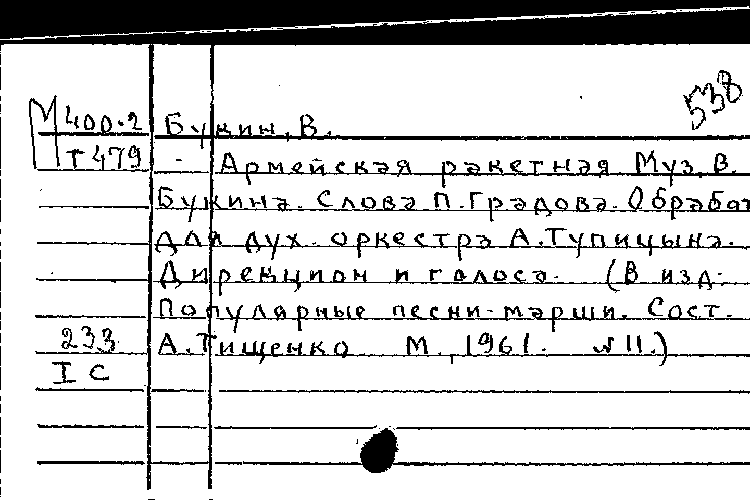 538
М400.2 Букин, В.
Т479 - Армейская ракетная Муз. В.
Букина. Слова П. Градова. Обработ
для дух. оркестра А. Тупицына.
Дирекцион и голоса. (В изд:
Популярные песни-марши. Сост.
233 А. Тищенко М., 1961. №11.)
I С